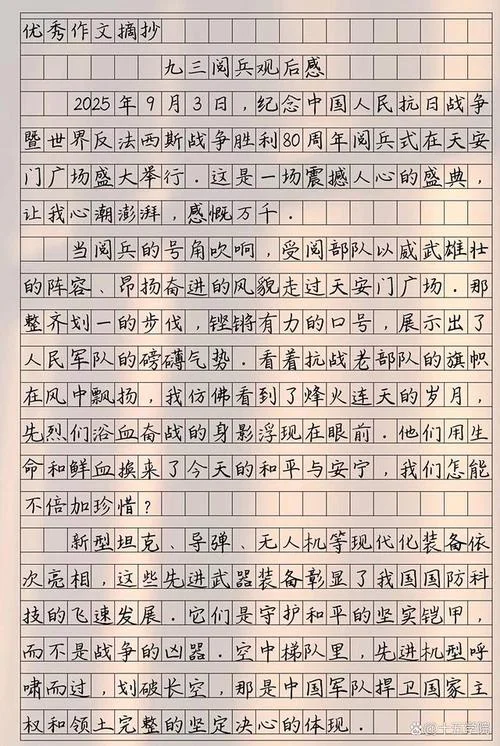 优秀作文摘抄
九三阅兵观后感
2025年9月3日,纪念中国人民抗日战争
暨世界反法西斯战争胜利80周年阅兵式在天安
门广场盛大举行.这是一场震撼人心的盛典,
让我心潮澎湃,感慨万千.
当阅兵的号角吹响,受阅部队以威武雄壮
的阵容、昂扬奋进的风貌走过天安门广场.那
整齐划一的步伐,铿锵有力的口号,展示出了
人民军队的磅礴气势.看着抗战老部队的旗帜
在风中飘扬,我仿佛看到了烽火连天的岁月,
先烈们浴血奋战的身影浮现在眼前.他们用生
命和鲜血换来了今天的和平与安宁,我们怎能
不倍加珍惜?
新型坦克、导弹、无人机等现代化装备依
次亮相,这些先进武器装备彰显了我国国防科
技的飞速发展.它们是守护和平的坚实铠甲,
而不是战争的凶器.空中梯队里,先进机型呼
啸而过,划破长空,那是中国军队捍卫国家主
权和领土完整的坚定决心的体现.
@十五学院